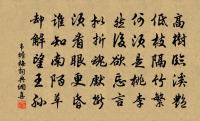 高樹臨溪艷
低枝隔竹繁
何須是桃李
然後欲忘言
擬折魂先斷
須看眼更昏
誰知南陌草
卻解望王孫